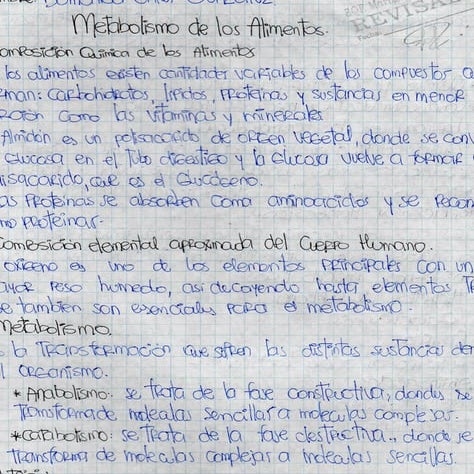 Metabolismo de los Alimentos.
omposición Química de los Alimentos
los alimentos existen cantidades variables de los compuestos a
rman: carbohidratos, lípidos, proteínas y sustancias en menor
rción como las vitaminas y minerales
Almidón es un polisacarido de origen vegetal, donde se conv
glucosa en el tubo digestivo y la glucosa vuelve a formar
isacarido, que es el Glucógeno.
as proteínas se absorben como aminoacidos y se recon
mo proteínas.
omposición elemental aproximada del Cuerpo Humano.
oxigeno es uno de los elementos principales con un
ayor peso humedo, asi decayendo hasta elementos T
e también son esenciales para el metabolismo.
Metabolismo.
s la transformación que sufren las distintas sustancias de
l organismo.
* Anabolismo: se trata de la fase constructiva, donde se
transforma de moleculas sencillas a moleculas complejas.
* Catabolismo: se trata de la fase destructiva, donde se
transforma de moleculas complejas a moleculas sencillas
REVISA